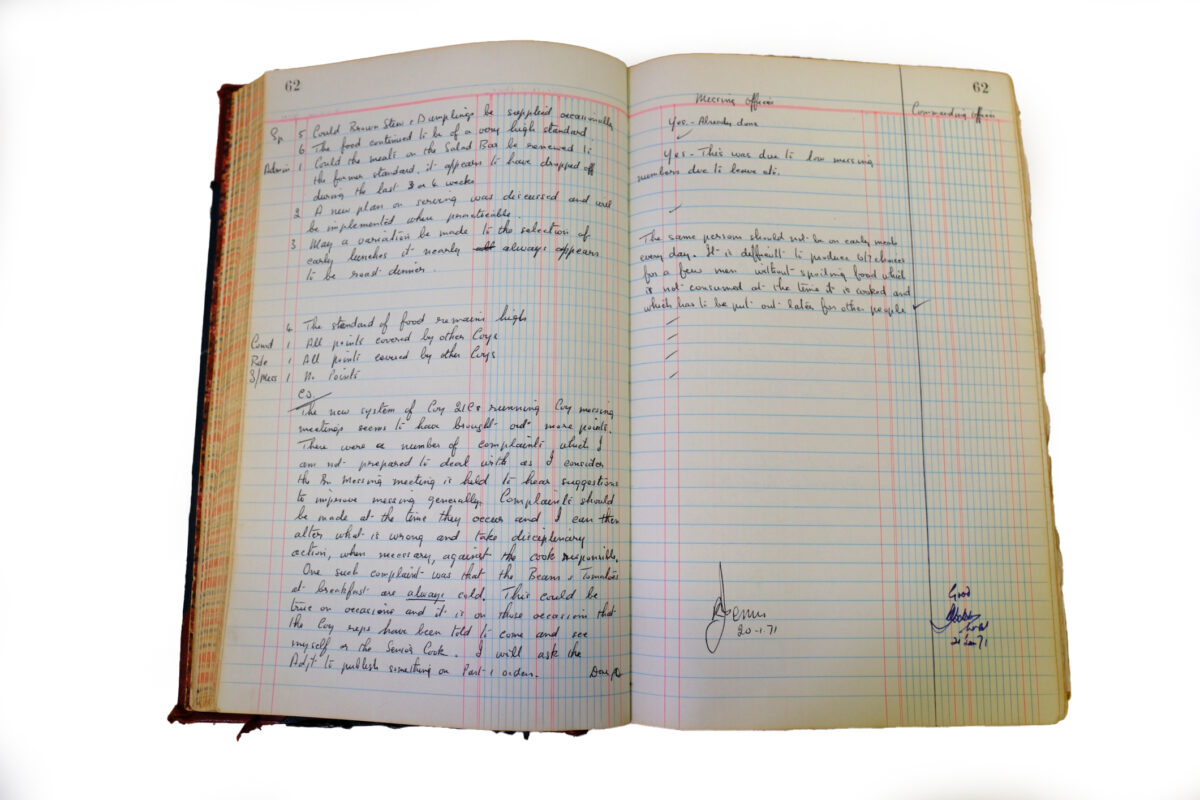 62
Sp. 5 Could Brown Stew & Dumplings be supplied occasionally
6 The food continued to be of a very high standard
Admin 1 Could the meats on the Salad Bar be renewed to
the former standard. it appears to have dropped off
during the last 3 or 4 weeks
2 A new plan on serving was discussed and will
be implemented when practicable.
3 May a variation be made to the selection of
early lunches it nearly always appears
to be roast dinner.
4 The standard of food remains high
Comd 1 All points covered by other Coys
Rde 1 All points covered by other Coys
S/mess 1 No Points
The new system of Coy 2ICs running Coy messing
meetings seems to have brought out more points.
There were a number of complaints which I
am not prepared to deal with as I consider
the Bn messing meeting is held to hear suggestions
to improve messing generally. Complaints should
be made at the time they occur and I can then
alter what is wrong and take disciplinary
action, when necessary, against the cook responsible.
One such complaint was that the Beans & Tomatoes
at breakfast are always cold. This could be
true on occasions and it is on those occasions that
the Coy reps have been told to come and see
myself or the Senior Cook. I will ask the
Adjt to publish something on Part 1 orders. Done
62
Messing Officer
Commanding Officer
Yes - Already done
Yes - This was due to low messing
numbers due to leave etc.
The same person should not be on early meals
every day. It is difficult to produce lot choices
for a few men without spoiling food which
is not consumed at the time it is cooked and
which has to be put out later for other people
20-1-71
Good
21 Jan 71